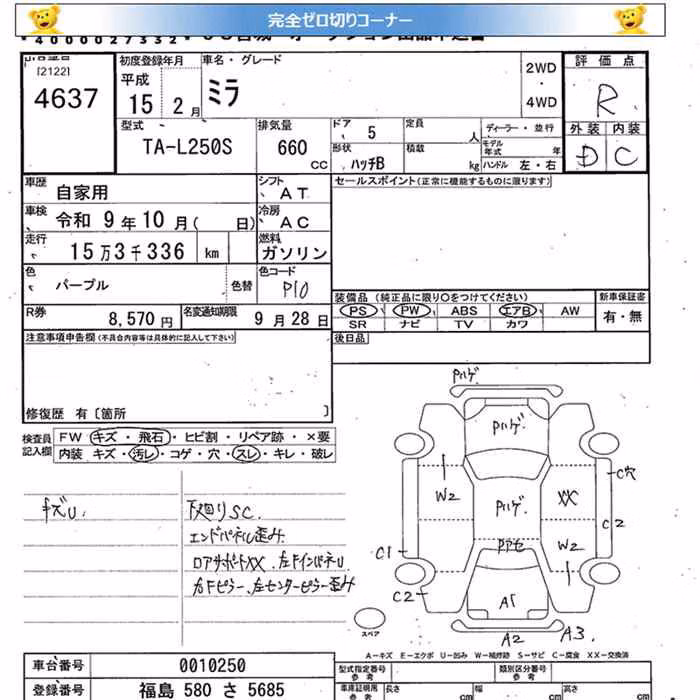 完全ゼロ切りコーナー
*4000027332*
[2122] 初度登録年月 車名・グレード 評価点
4637 平成 15年 2月 ミラ 2WD ・ 4WD R
外装 内装
D C
型式 排気量 ドア 5 定員 人 ディーラー・並行
TA-L250S 660 CC 形状 ハッチB 積載 kg モデル年式 年 ハンドル 左・右
車歴 自家用 シフト AT セールスポイント(正常に機能するものに限ります)
車検 令和 9年 10月 ( 日) 冷房 AC
走行 15万3千336 km 燃料 ガソリン
色 パープル 色替 色コード P10
装備品 (純正品に限り○をつけてください) 新車保証書
R券 8,570円 名変通知期限 9月28日 PS PW ABS エアB AW 有・無
SR ナビ TV カワ
注意事項申告欄(不具合内容等は具体的に記入して下さい) 後日品
修復歴 有〔箇所 〕
検査員記入欄 FW キズ・飛石・ヒビ割・リペア跡・×要
内装 キズ・汚レ・コゲ・穴・スレ・キレ・破レ
キズU. 下廻りSC.
エンドパネル歪み.
ロアサポートXX. 左FインパネU
右Fピラー、左センターピラー歪み
Pハゲ.
Pハゲ.
C穴
W2 Pハゲ. XX
C2
Pアセ W2
C1
C2
A1
スペア A2 A3.
A=キズ E=エクボ U=凹み W=補修跡 S=サビ C=腐食 XX=交換済
車台番号 0010250 型式指定番号 参考 類別区分番号 参考
登録番号 福島 580 さ 5685 車庫証明用 参考 長さ cm 幅 cm 高さ cm